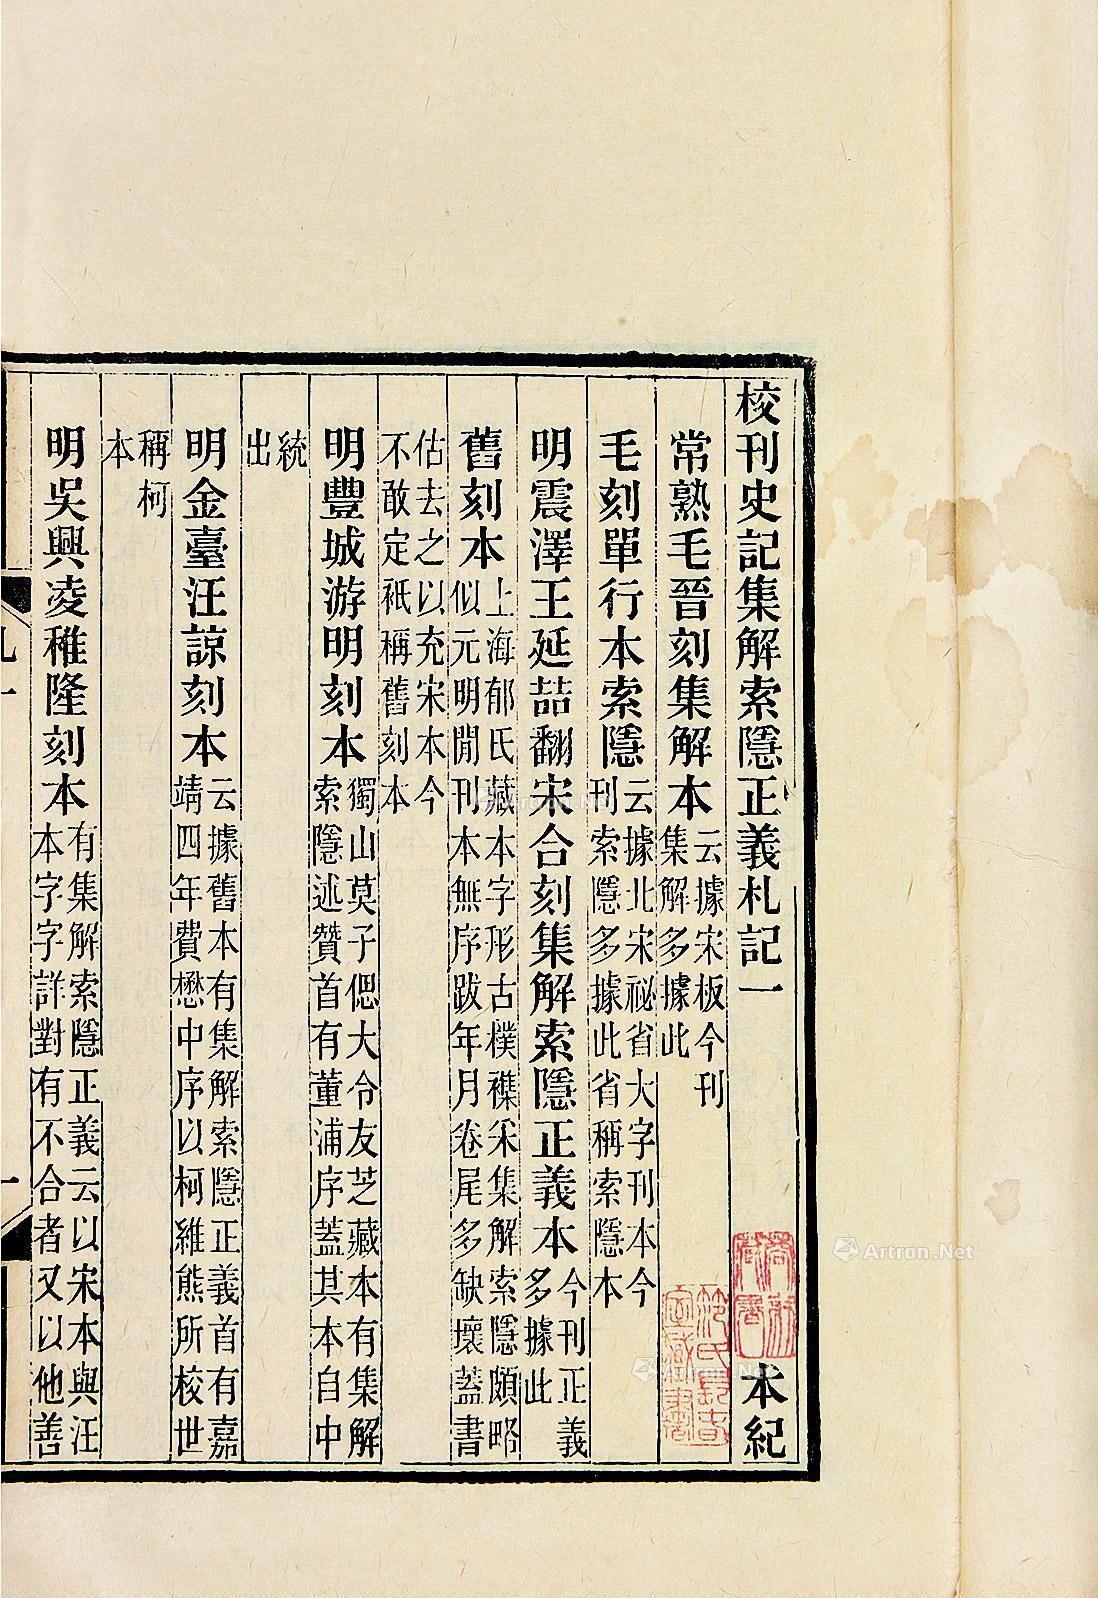 校刊史記集解索隱正義札記一
本紀
常熟毛晉刻集解本
云據宋板今刊
集解多據此
毛刻單行本索隱
云據北宋祕省大字刊本今
刊索隱多據此省稱索隱本
明震澤王延喆翻宋合刻集解索隱正義本
今刊正義
多據此
舊刻本
上海郁氏藏本字形古樸襍采集解索隱頗略
似元明閒刊本無序跋年月卷尾多缺壞蓋書
估去之以充宋本今
不敢定祇稱舊刻本
明豐城游明刻本
獨山莫子偲大令友芝藏本有集解
索隱述贊首有董浦序蓋其本自中
統
出
明金臺汪諒刻本
云據舊本有集解索隱正義首有嘉
靖四年費懋中序以柯維熊所校世
稱柯
本
明吳興凌稚隆刻本
有集解索隱正義云以宋本與汪
本字字詳對有不合者又以他善
札一
一
藏書
范氏
室藏書
Artron.Net
Artron.Net
Artron.Net